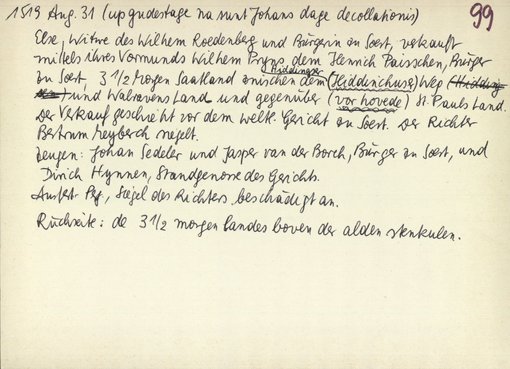 1519 Aug. 31 (up gudestage na sunt Johans dage decollationis) 99
Else, Witwe des Wilhelm Roedenberg und Bürgerin zu Soest, verkauft
mittels ihres Vormunds Wilhelm Pryns dem Henrich Paisschen, Bürger
zu Soest, 3 1/2 Morgen Saatland zwischen dem Hiddingser (Hiddinchuser) Weg
und Walravens Land und gegenüber (vor hovede) St. Pauls Land.
Der Verkauf geschieht vor dem weltl. Gericht zu Soest. Der Richter
Bertram Meyberch siegelt.
Zeugen: Johan Sedeler und Jasper van der Borch, Bürger zu Soest, und
Dirich Hynnen, Standgenosse des Gerichts.
Ausfert. Pg, Siegel des Richters beschädigt an.
Rückseite: de 3 1/2 morgen landes boven der alden stenkulen.